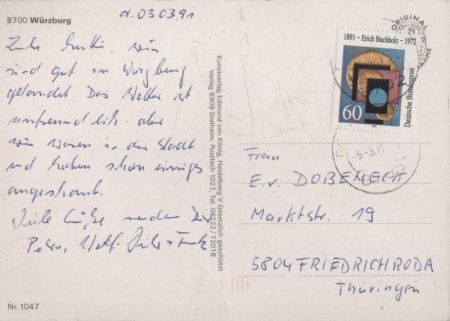 8700 Würzburg
d. 030391
Liebe Mutti, wir
sind gut in Würzburg
gelandet. Das Wetter ist
unfreundlich, aber
wir waren in der Stadt
und haben schon einiges
angeschaut.
Viele Grüße senden Dir
Peter,
Nr. 1047
Kunstverlag Edmund von König, Heidelberg
Gesetzlich geschützt
Verlag 6909 Dielheim, Postfach 1027, Tel. 06222/72018
ORIGINAL
1891 - Erich Buchholz - 1972
60
Deutsche Bundespost
Frau
E. v. DOBENECK
Marktstr. 19
5804 FRIEDRICHRODA
Thüringen